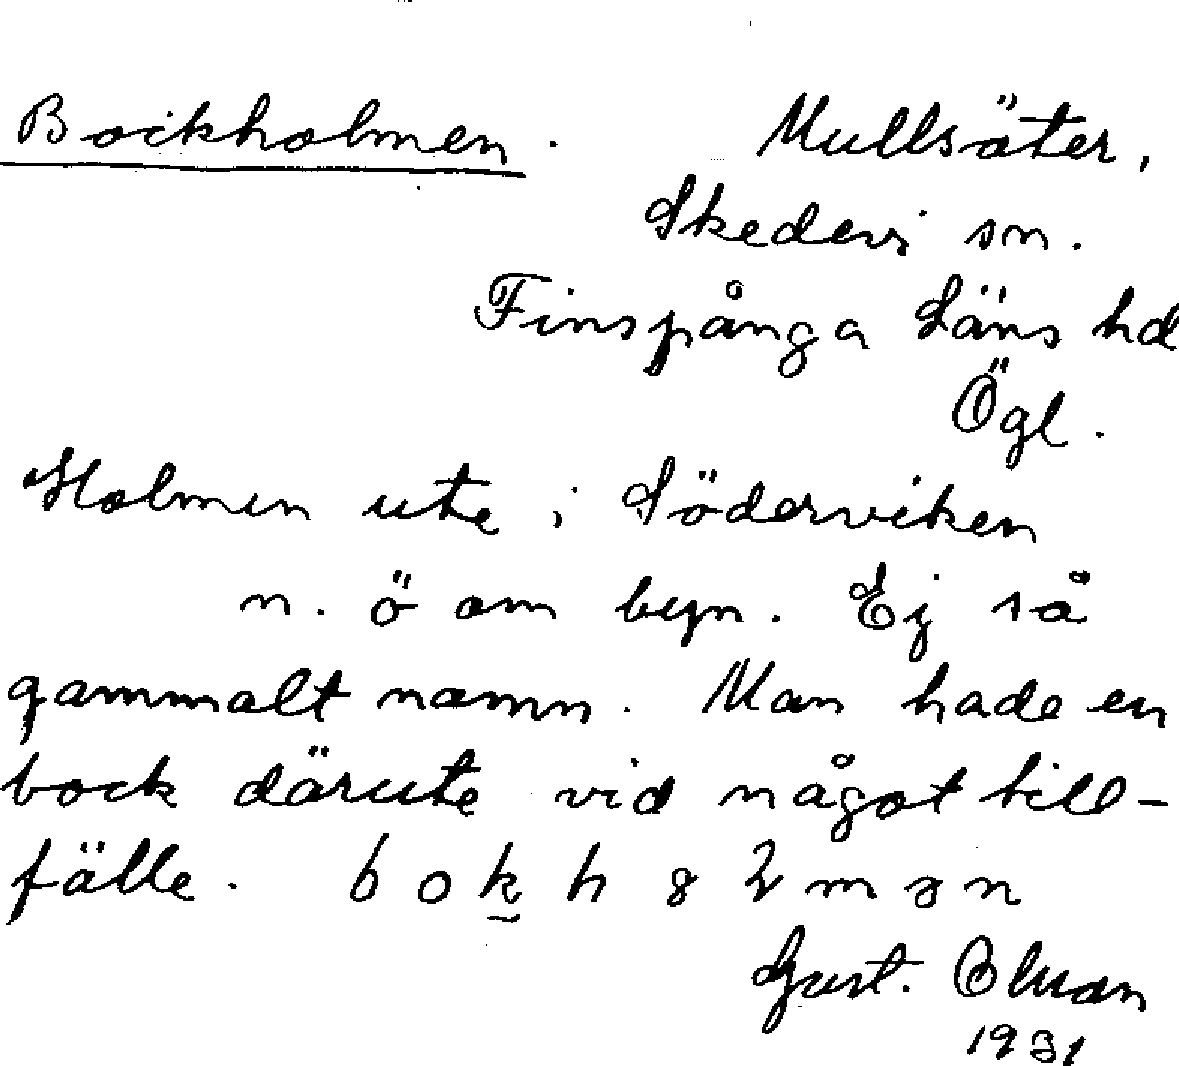 Bockholmen. Mullsäter,
Skedevi sn.
Finspånga Läns hd
Ögl.
Holmen ute i Söderviken
n. ö om byn. Ej så
gammalt namn. Man hade en
bock därute vid något till-
fälle.
Gust. Ekman
1931